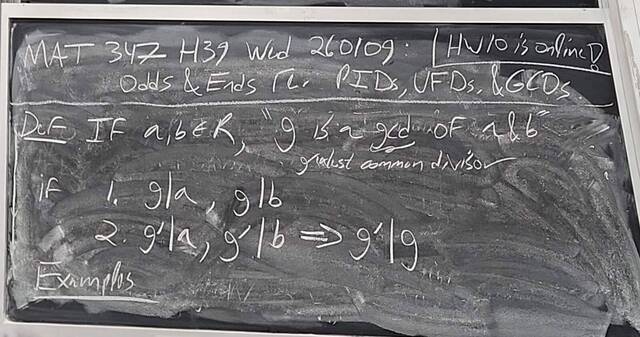 MAT 347 H39 Wed 260109: HW10 is online!
Odds & Ends re. PIDs, UFDs, & GCDs.
Def IF a,b∈R, "g is a gcd of a&b"
greatest common divisor
if 1. g|a, g|b
2. g'|a, g'|b ⟹ g'|g
Examples